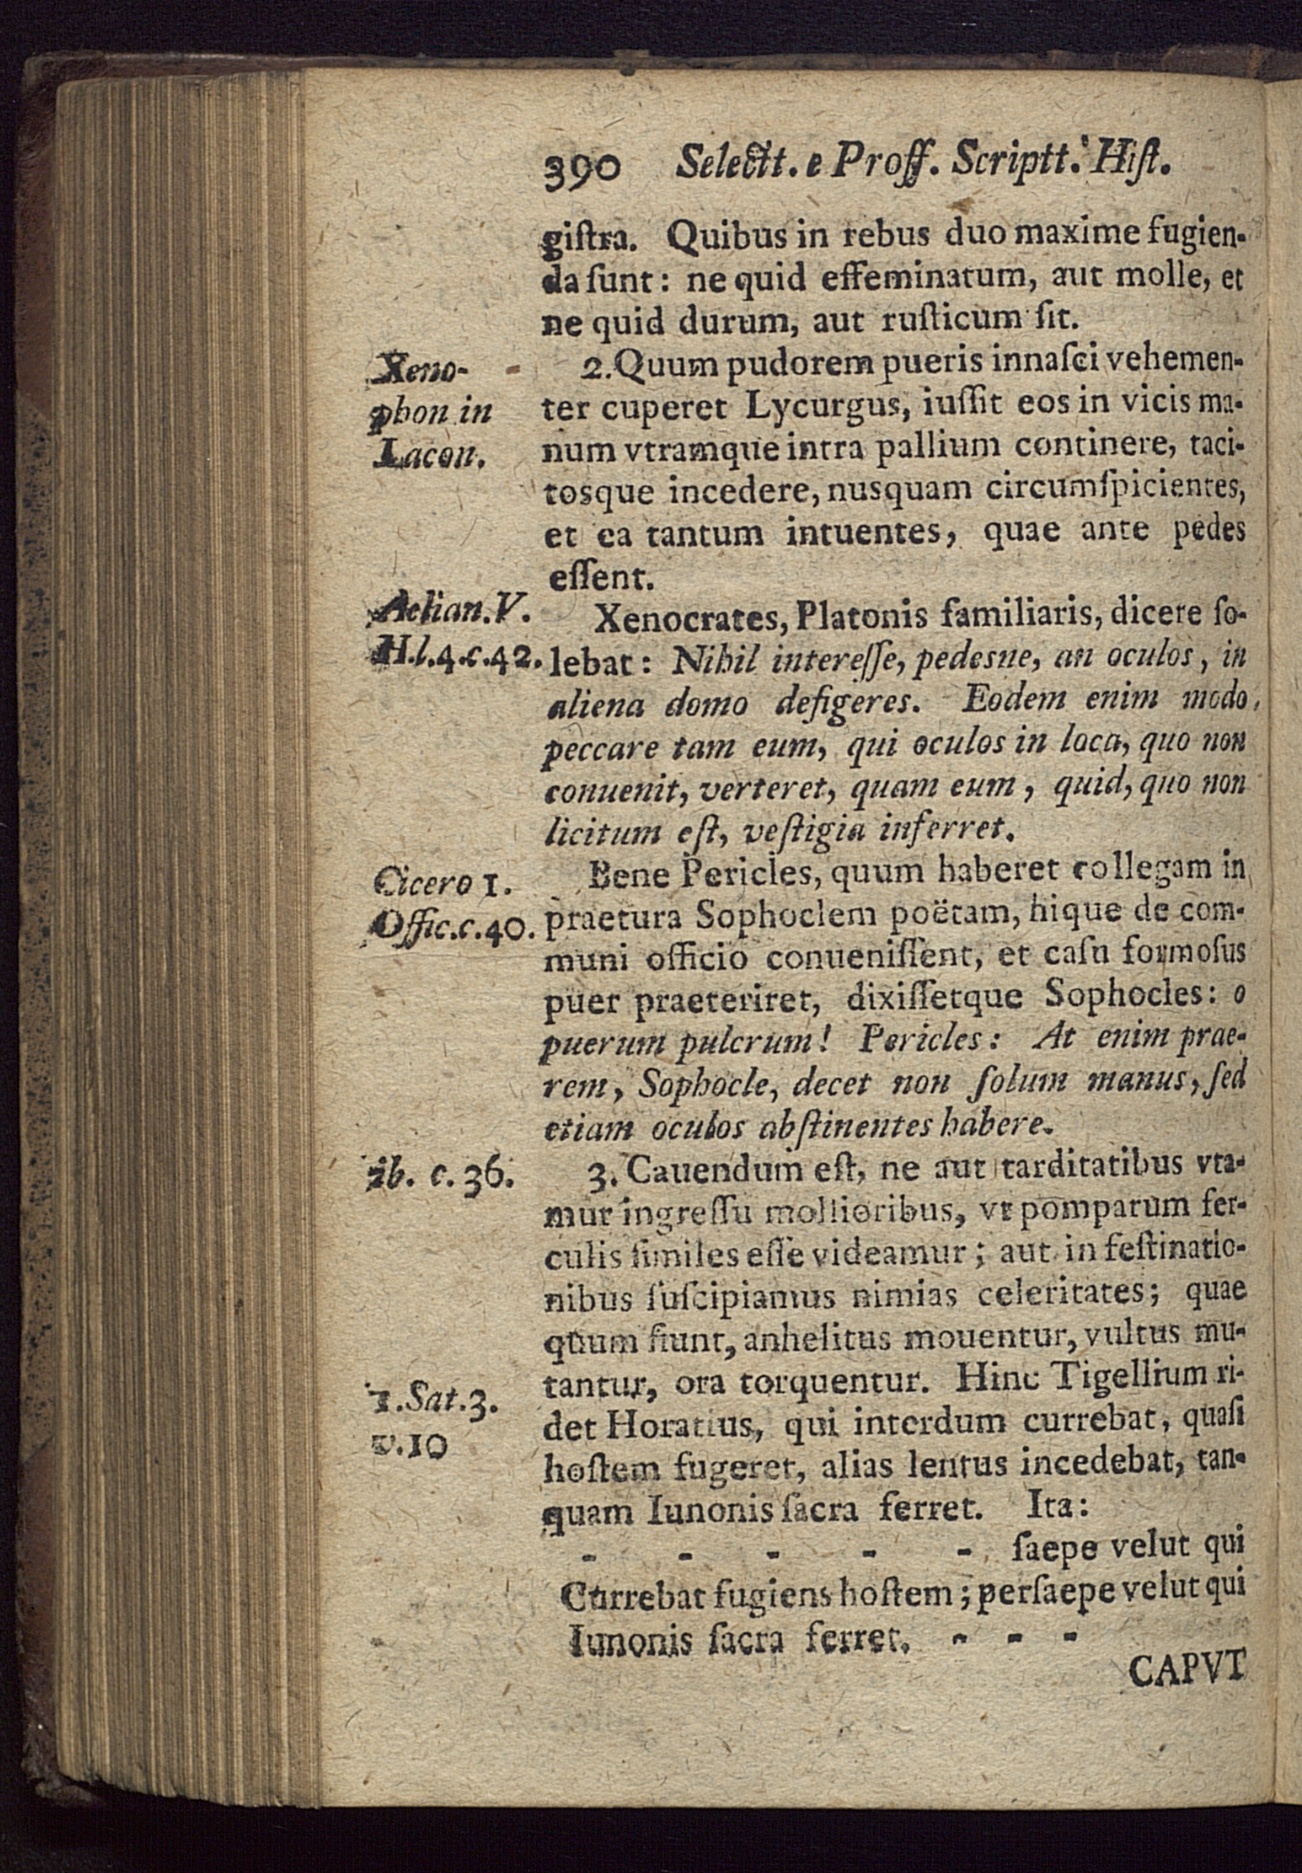 390 Selectt. e Proff. Scriptt. Hiſt.
giſtra. Quibus in rebus duo maxime fugien-
da ſunt: ne quid effeminatum, aut molle, et
ne quid durum, aut ruſticum ſit.
Xeno-
phon in
Lacon.
2. Quum pudorem pueris innaſci vehemen-
ter cuperet Lycurgus, iuſſit eos in vicis ma-
num vtramque intra pallium continere, taci-
tosque incedere, nusquam circumſpicientes,
et ea tantum intuentes, quae ante pedes
eſſent.
Aelian. V.
H. l. 4. c. 42.
Xenocrates, Platonis familiaris, dicere ſo-
lebat: Nihil intereſſe, pedesne, an oculos, in
aliena domo defigeres. Eodem enim modo
peccare tam eum, qui oculos in loca, quo non
conuenit, verteret, quam eum, quid, quo non
licitum eſt, veſtigia inferret.
Cicero 1.
Offic. c. 40.
Bene Pericles, quum haberet collegam in
praetura Sophoclem poëtam, hique de com-
muni officio conueniſſent, et caſu formoſus
puer praeteriret, dixiſſetque Sophocles: o
puerum pulcrum! Pericles: At enim prae-
rem, Sophocle, decet non ſolum manus, ſed
etiam oculos abſtinentes habere.
ib. c. 36.
3. Cauendum eſt, ne aut tarditatibus vta-
mur ingreſſu mollioribus, vt pomparum fer-
culis ſimiles eſſe videamur; aut in feſtinatio-
nibus ſuſcipiamus nimias celeritates; quae
quum fiunt, anhelitus mouentur, vultus mu-
tantur, ora torquentur. Hinc Tigellium ri-
1. Sat. 3.
v. 10
det Horatius, qui interdum currebat, quaſi
hoſtem fugeret, alias lentus incedebat, tan-
quam Iunonis ſacra ferret. Ita:
- - - - - ſaepe velut qui
Currebat fugiens hoſtem; perſaepe velut qui
Iunonis ſacra ferret. - - -
CAPVT